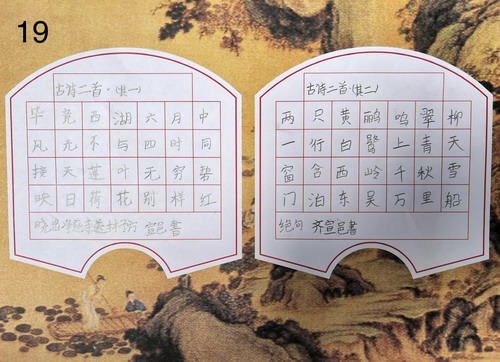 19
古诗二首·(其一)
毕竟西湖六月中
风光不与四时同
接天莲叶无穷碧
映日荷花别样红
晓出净慈寺送林子方 宣邑書
古诗二首·(其二)
两只黄鹂鸣翠柳
一行白鹭上青天
窗含西岭千秋雪
门泊东吴万里船
绝句 齐宣邑書